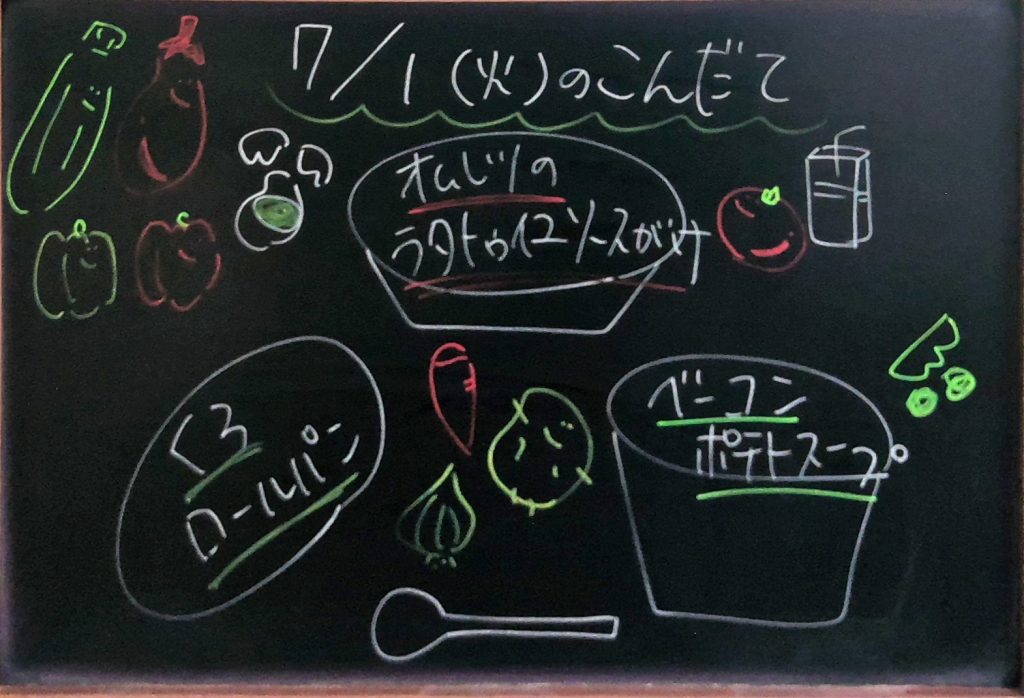 7/1(火)のこんだて
オムレツの
ラタトゥイユソースがけ
くろ
ロールパン
ベーコン
ポテトスープ